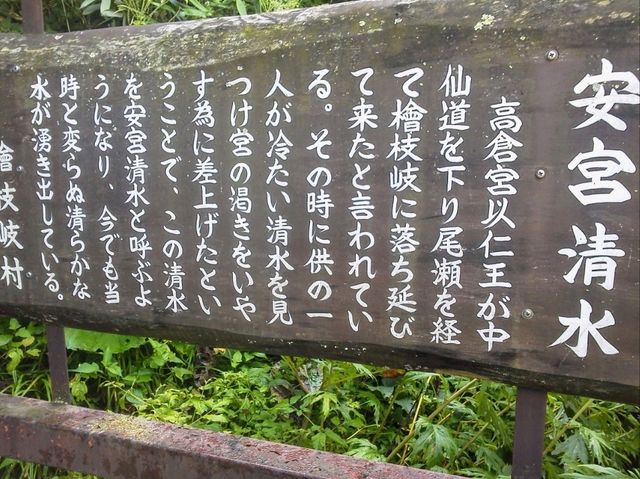 安宮清水
高倉宮以仁王が中
仙道を下り尾瀬を経
て檜枝岐に落ち延び
て来たと言われてい
る。その時に供の一
人が冷たい清水を見
つけ宮の渇きをいや
す為に差上げたとい
うことで、この清水
を安宮清水と呼ぶよ
うになり、今でも当
時と変らぬ清らかな
水が湧き出している。
檜枝岐村